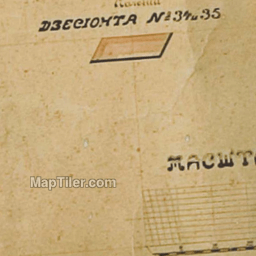 ДЗЕСІОНТА № 34 и 35
МАСШТ
MapTiler.com